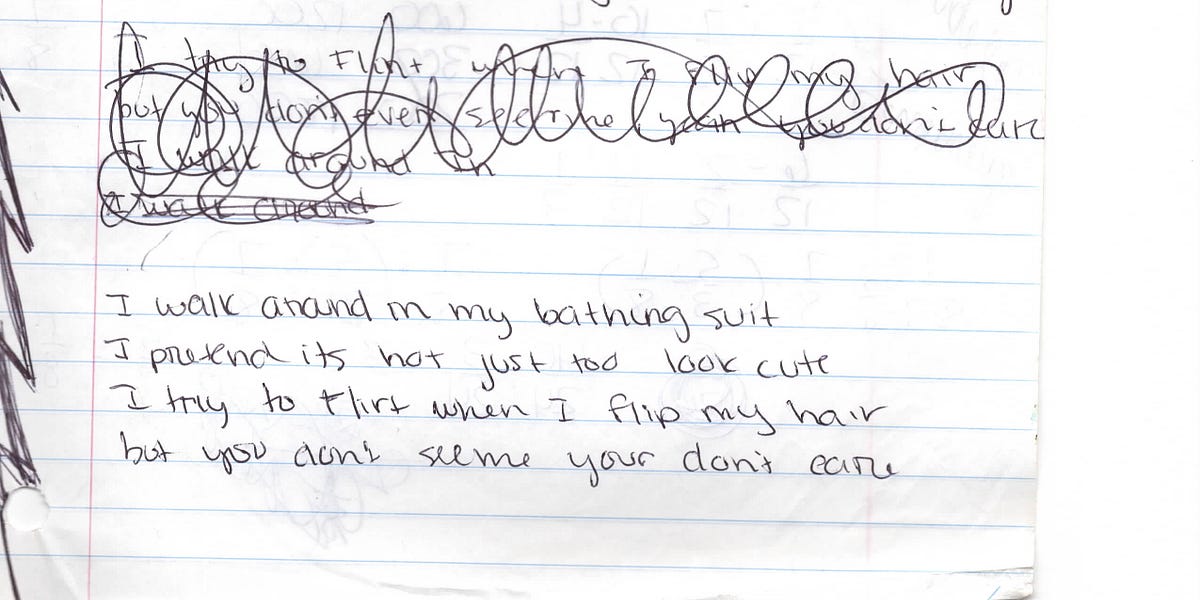 I try to Flirt when I flip my hair
but you don't even see me yeah you don't care
I walk around in
I walk around
I walk around in my bathing suit
I pretend its not just too look cute
I try to flirt when I flip my hair
but you don't seeme your don't care